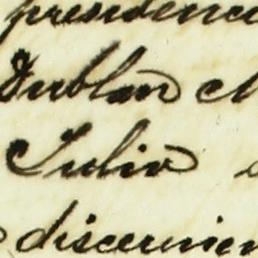 presidenc
Dublan
Julio
discernien